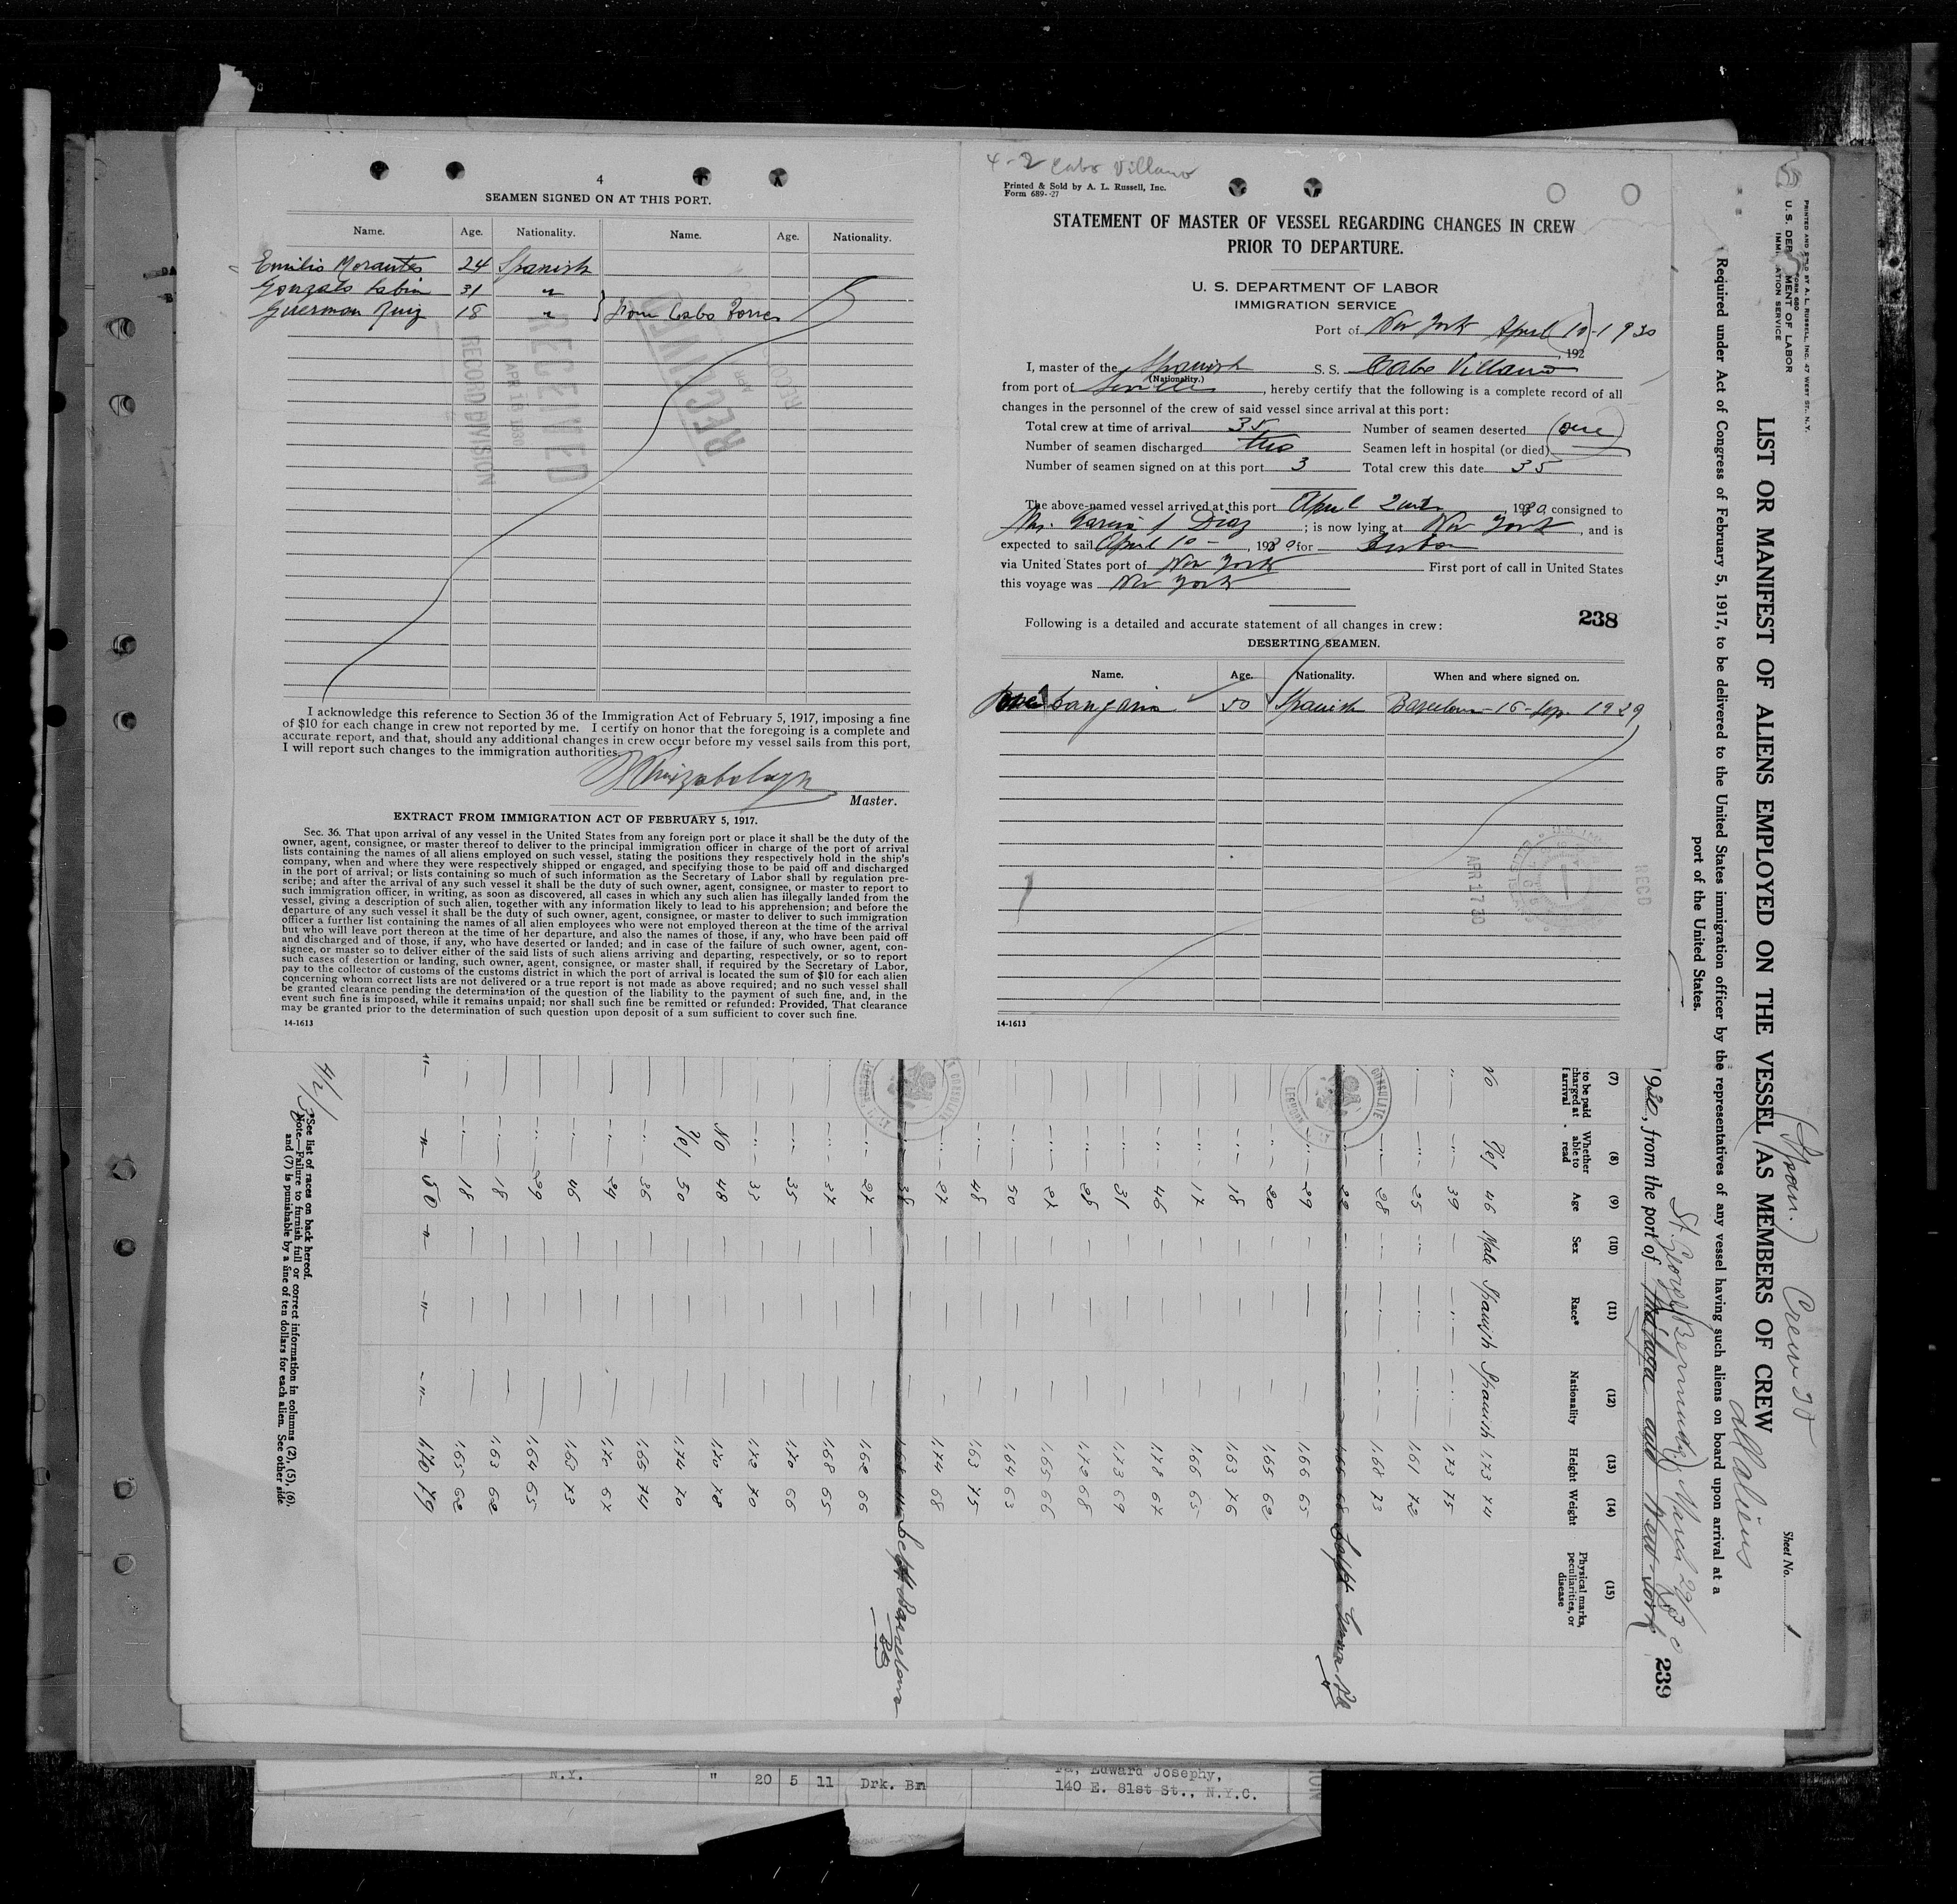 4
SEAMEN SIGNED ON AT THIS PORT.
Name. Age. Nationality. Name. Age. Nationality.
Emilio Morantes 24 Spanish
Gonzalo 31 "
Guerman Ruiz 18 " } from Cabo Torres
RECEIVED
APR 16 1930
RECORD DIVISION
RECEIVED
APR
I acknowledge this reference to Section 36 of the Immigration Act of February 5, 1917, imposing a fine
of $10 for each change in crew not reported by me. I certify on honor that the foregoing is a complete and
accurate report, and that, should any additional changes in crew occur before my vessel sails from this port,
I will report such changes to the immigration authorities.
Master.
EXTRACT FROM IMMIGRATION ACT OF FEBRUARY 5, 1917.
Sec. 36. That upon arrival of any vessel in the United States from any foreign port or place it shall be the duty of the
owner, agent, consignee, or master thereof to deliver to the principal immigration officer in charge of the port of arrival
lists containing the names of all aliens employed on such vessel, stating the positions they respectively hold in the ship's
company, when and where they were respectively shipped or engaged, and specifying those to be paid off and discharged
in the port of arrival; or lists containing so much of such information as the Secretary of Labor shall by regulation pre-
scribe; and after the arrival of any such vessel it shall be the duty of such owner, agent, consignee, or master to report to
such immigration officer, in writing, as soon as discovered, all cases in which any such alien has illegally landed from the
vessel, giving a description of such alien, together with any information likely to lead to his apprehension; and before the
departure of any such vessel it shall be the duty of such owner, agent, consignee, or master to deliver to such immigration
officer a further list containing the names of all alien employees who were not employed thereon at the time of the arrival
but who will leave port thereon at the time of her departure, and also the names of those, if any, who have been paid off
and discharged and of those, if any, who have deserted or landed; and in case of the failure of such owner, agent, con-
signee, or master so to deliver either of the said lists of such aliens arriving and departing, respectively, or so to report
such cases of desertion or landing, such owner, agent, consignee, or master shall, if required by the Secretary of Labor,
pay to the collector of customs of the customs district in which the port of arrival is located the sum of $10 for each alien
concerning whom correct lists are not delivered or a true report is not made as above required; and no such vessel shall
be granted clearance pending the determination of the question of the liability to the payment of such fine, and, in the
event such fine is imposed, while it remains unpaid; nor shall such fine be remitted or refunded: Provided, That clearance
may be granted prior to the determination of such question upon deposit of a sum sufficient to cover such fine.
14-1613
4-2 Cabo Villano
Printed & Sold by A. L. Russell, Inc.
Form 689--27
STATEMENT OF MASTER OF VESSEL REGARDING CHANGES IN CREW
PRIOR TO DEPARTURE.
U. S. DEPARTMENT OF LABOR
IMMIGRATION SERVICE
Port of New York April 10-1930
, 192
I, master of the Spanish S. S. Cabo Villano
(Nationality.)
from port of Sevilla, hereby certify that the following is a complete record of all
changes in the personnel of the crew of said vessel since arrival at this port:
Total crew at time of arrival 35 Number of seamen deserted (one)
Number of seamen discharged two Seamen left in hospital (or died)
Number of seamen signed on at this port 3 Total crew this date 35
The above-named vessel arrived at this port April 2nd, 1930, consigned to
Garcia & Diaz; is now lying at New York, and is
expected to sail April 10 -, 1930 for
via United States port of New York First port of call in United States
this voyage was New York
238
Following is a detailed and accurate statement of all changes in crew:
DESERTING SEAMEN.
Name. Age. Nationality. When and where signed on.
50 Spanish Barcelona - 16 - Sep. 1929
APR 17 30
REC'D
14-1613
PRINTED AND SOLD BY A. L. RUSSELL, INC. 47 WEST ST. N.Y.
FORM 680
U. S. DEPARTMENT OF LABOR
IMMIGRATION SERVICE
(Spain.) Crew 35
all aliens
Sheet No. 1
LIST OR MANIFEST OF ALIENS EMPLOYED ON THE VESSEL AS MEMBERS OF CREW
Required under Act of Congress of February 5, 1917, to be delivered to the United States immigration officer by the representatives of any vessel having such aliens on board upon arrival at a
port of the United States.
St. George (Bermuda) March 29/30
1930, from the port of Malaga and New York
239
(7) (8) (9) (10) (11) (12) (13) (14) (15)
to be paid
charged at
arrival
Whether
able to
read
Age
Sex
Race*
Nationality
Height
Weight
Physical marks,
peculiarities, or
disease
No Yes 46 Male Spanish Spanish 1.73 74
39 1.73 75
25 1.61 72
28 1.68 73
22 1.66 68
29 1.66 65
20 1.65 62
18 1.63 76
17 1.66 65
46 1.78 67
31 1.73 69
28 1.72 68
27 1.65 66
50 1.64 63
48 1.63 75
27 1.74 68
38 Left Barcelona
27 1.62 66
37 1.68 65
35 1.70 66
33 1.72 70
No 48 1.70 78
Yes 50 1.74 70
36 1.65 74
24 1.70 67
46 1.65 73
29 1.64 65
18 1.63 62
18 1.65 62
50 1.70 79
4/2/30
*See list of races on back hereof.
Note.—Failure to furnish full or correct information in columns (2), (5), (6),
and (7) is punishable by a fine of ten dollars for each alien. See other side.
N.Y. " 20 5 11 Drk. Bn
Edward Josephy,
140 E. 81st St., N.Y.C.